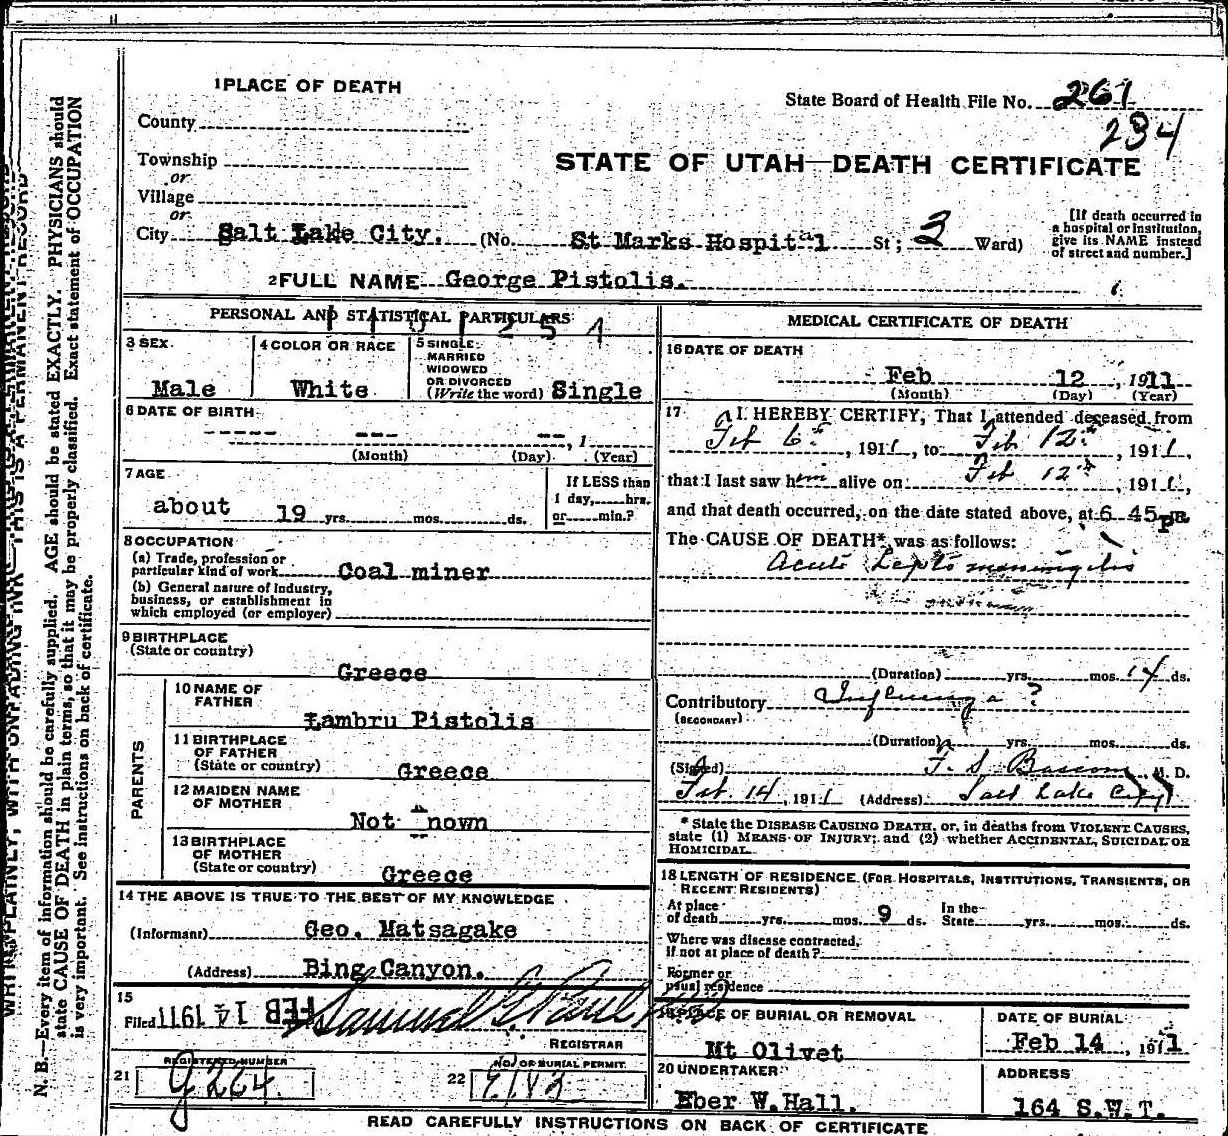 1 PLACE OF DEATH
State Board of Health File No. 261
234
County
Township
or
Village
or
City Salt Lake City. (No. St Marks Hospital St; 3 Ward)
STATE OF UTAH—DEATH CERTIFICATE
[If death occurred in
a hospital or institution,
give its NAME instead
of street and number.]
2 FULL NAME George Pistolis.
PERSONAL AND STATISTICAL PARTICULARS
3 SEX
Male
4 COLOR OR RACE
White
5 SINGLE
MARRIED
WIDOWED
OR DIVORCED
(Write the word) Single
6 DATE OF BIRTH
----- --- --, 1
(Month) (Day) (Year)
7 AGE
about 19 yrs. mos. ds.
If LESS than
1 day, hrs.
or min.?
8 OCCUPATION
(a) Trade, profession or
particular kind of work Coal miner
(b) General nature of industry,
business, or establishment in
which employed (or employer)
9 BIRTHPLACE
(State or country)
Greece
PARENTS
10 NAME OF
FATHER
Lambru Pistolis
11 BIRTHPLACE
OF FATHER
(State or country) Greece
12 MAIDEN NAME
OF MOTHER
Not nown
13 BIRTHPLACE
OF MOTHER
(State or country)
Greece
14 THE ABOVE IS TRUE TO THE BEST OF MY KNOWLEDGE
(Informant) Geo. Matsagake
(Address) Bing Canyon.
15
Filed FEB 14 1911 Samuel G. Paul
REGISTRAR
REGISTERED NUMBER
21 g 264
NO. OF BURIAL PERMIT
22
MEDICAL CERTIFICATE OF DEATH
16 DATE OF DEATH
Feb 12, 1911
(Month) (Day) (Year)
17 I HEREBY CERTIFY, That I attended deceased from
Feb 6th, 1911, to Feb 12th, 1911,
that I last saw him alive on Feb 12th, 1911,
and that death occurred, on the date stated above, at 6 45 PM
The CAUSE OF DEATH* was as follows:
Acute Lepto meningitis
(Duration) yrs. mos. 14 ds.
Contributory Influenza ?
(SECONDARY)
(Duration) yrs. mos. ds.
(Signed) F. S. Bascom, M. D.
Feb. 14, 1911 (Address) Salt Lake City
* State the DISEASE CAUSING DEATH, or, in deaths from VIOLENT CAUSES,
state (1) MEANS OF INJURY; and (2) whether ACCIDENTAL, SUICIDAL OR
HOMICIDAL.
18 LENGTH OF RESIDENCE (FOR HOSPITALS, INSTITUTIONS, TRANSIENTS, OR
RECENT RESIDENTS)
At place
of death yrs. mos. 9 ds. In the
State yrs. mos. ds.
Where was disease contracted,
if not at place of death?
Former or
usual residence
19 PLACE OF BURIAL OR REMOVAL
Mt Olivet
DATE OF BURIAL
Feb 14, 1911
20 UNDERTAKER
Eber W. Hall.
ADDRESS
164 S.W.T.
READ CAREFULLY INSTRUCTIONS ON BACK OF CERTIFICATE
WRITE PLAINLY, WITH UNFADING INK—THIS IS A PERMANENT RECORD
N. B.—Every item of information should be carefully supplied. AGE should be stated EXACTLY. PHYSICIANS should
state CAUSE OF DEATH in plain terms, so that it may be properly classified. Exact statement of OCCUPATION
is very important. See instructions on back of certificate.